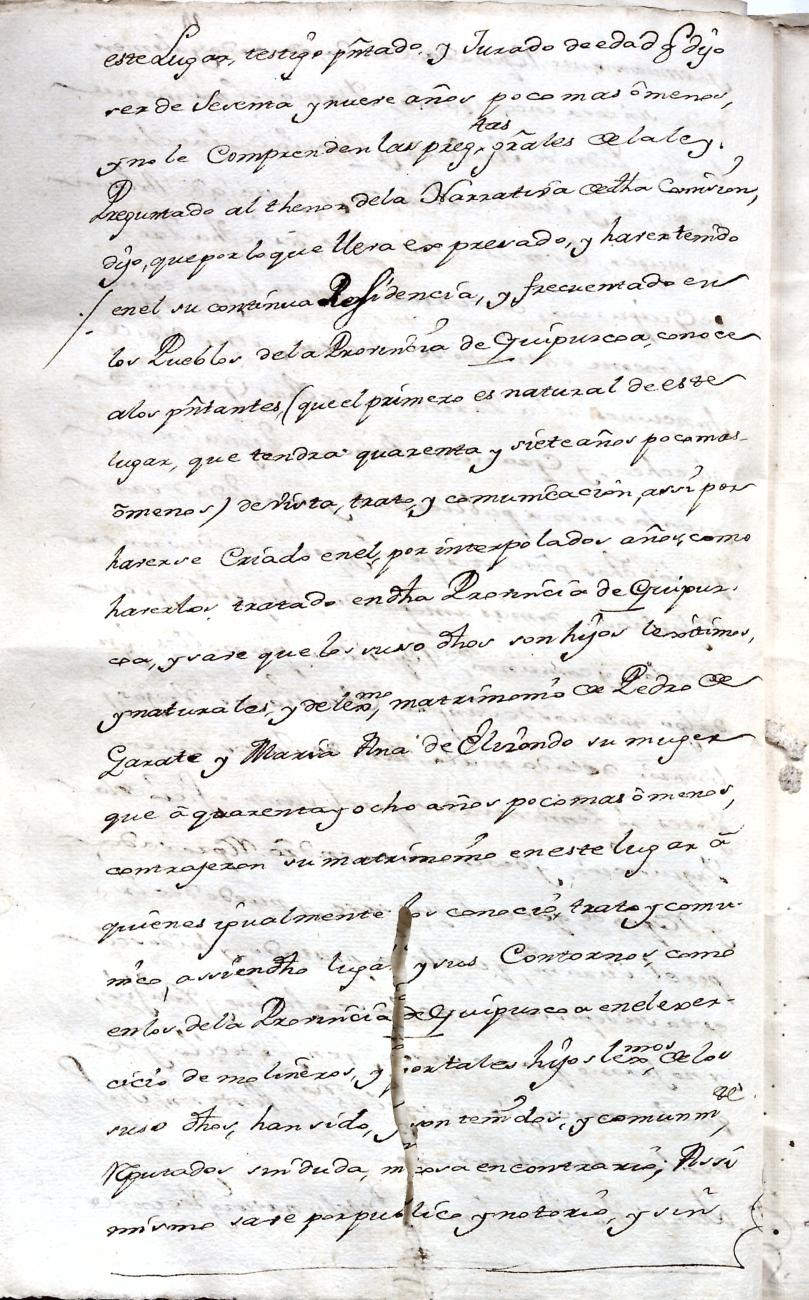 este Lugar, testigo pñtado, y Jurado de edad q dijo
ser de Sesenta y nueve años poco mas ômenos,
y no le Comprenden las preg.tas grãles de la ley.
Preguntado al thenor dela Narrativa de dha Comision,
dijo, que por lo que lleva expresado, y haver tenido
en el su continua Residencia, y frecuentado en
los Pueblos de la Provincia de Guipuscoa, conoce
alos pñtantes, (que el primero es natural de este
lugar, que tendra quarenta y siete años poco mas
ômenos) de vista, trato, y comunicacion, assi por
haverse Criado en el, por interpolados años, como
haverlos tratado en dha Provincia de Guipus
coa, y save que los suso dhos son hijos lexitimos,
y naturales, y de lex.mo matrimonio de Pedro de
Garate y Maria Ana de Elizondo su muger
que â quarenta y ocho años poco mas ômenos,
contrajeron su matrimonio en este lugar â
quienes igualmente los conocio, trato y comu
nico, assi en dho lugar y sus Contornos, como
en los de la Provincia de Guipuscoa en el exer-
cicio de molineros, y por tales hijos lex.mos de los
suso dhos, han sido, y son tenidos, y comunm.te
Reputados sin duda, ni cosa en contrario; Assi
mismo save por publico y notorio, y sin